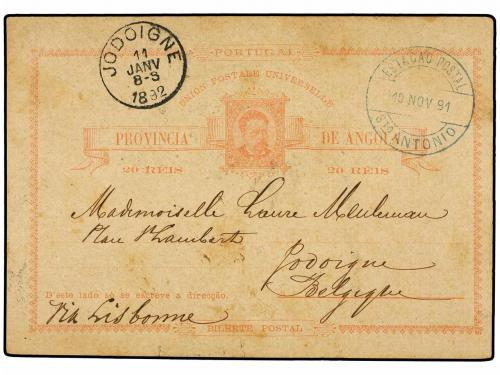 PORTUGAL
UNION POSTALE UNIVERSELLE
JODOIGNE
11
JANV
8-S
1892
ESTAÇÃO POSTAL
10 NOV 91
STO ANTONIO
PROVINCIA DE ANGOLA
20 REIS 20 REIS
Mademoiselle Laure Meuleman
Place St Lambert
Jodoigne
Belgique
D'este lado só se escreve a direcção.
Via Lisbonne
BILHETE POSTAL